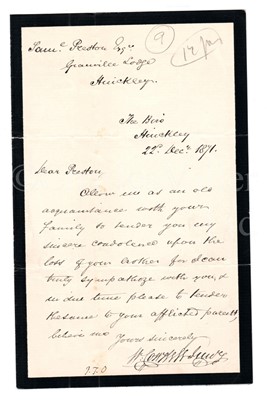 Saml. Preston Esqr.
Granville Lodge
Hinckley.
9
The
Hinckley
22d. Decr. 1871.
Dear Preston,
Allow me as an old
acquaintance with your
Family to tender you my
sincere condolence upon the
loss of your brother for I can
truly sympathize with you &
in due time please to tender
the same to your afflicted parents,
believe me
Yours sincerely
170